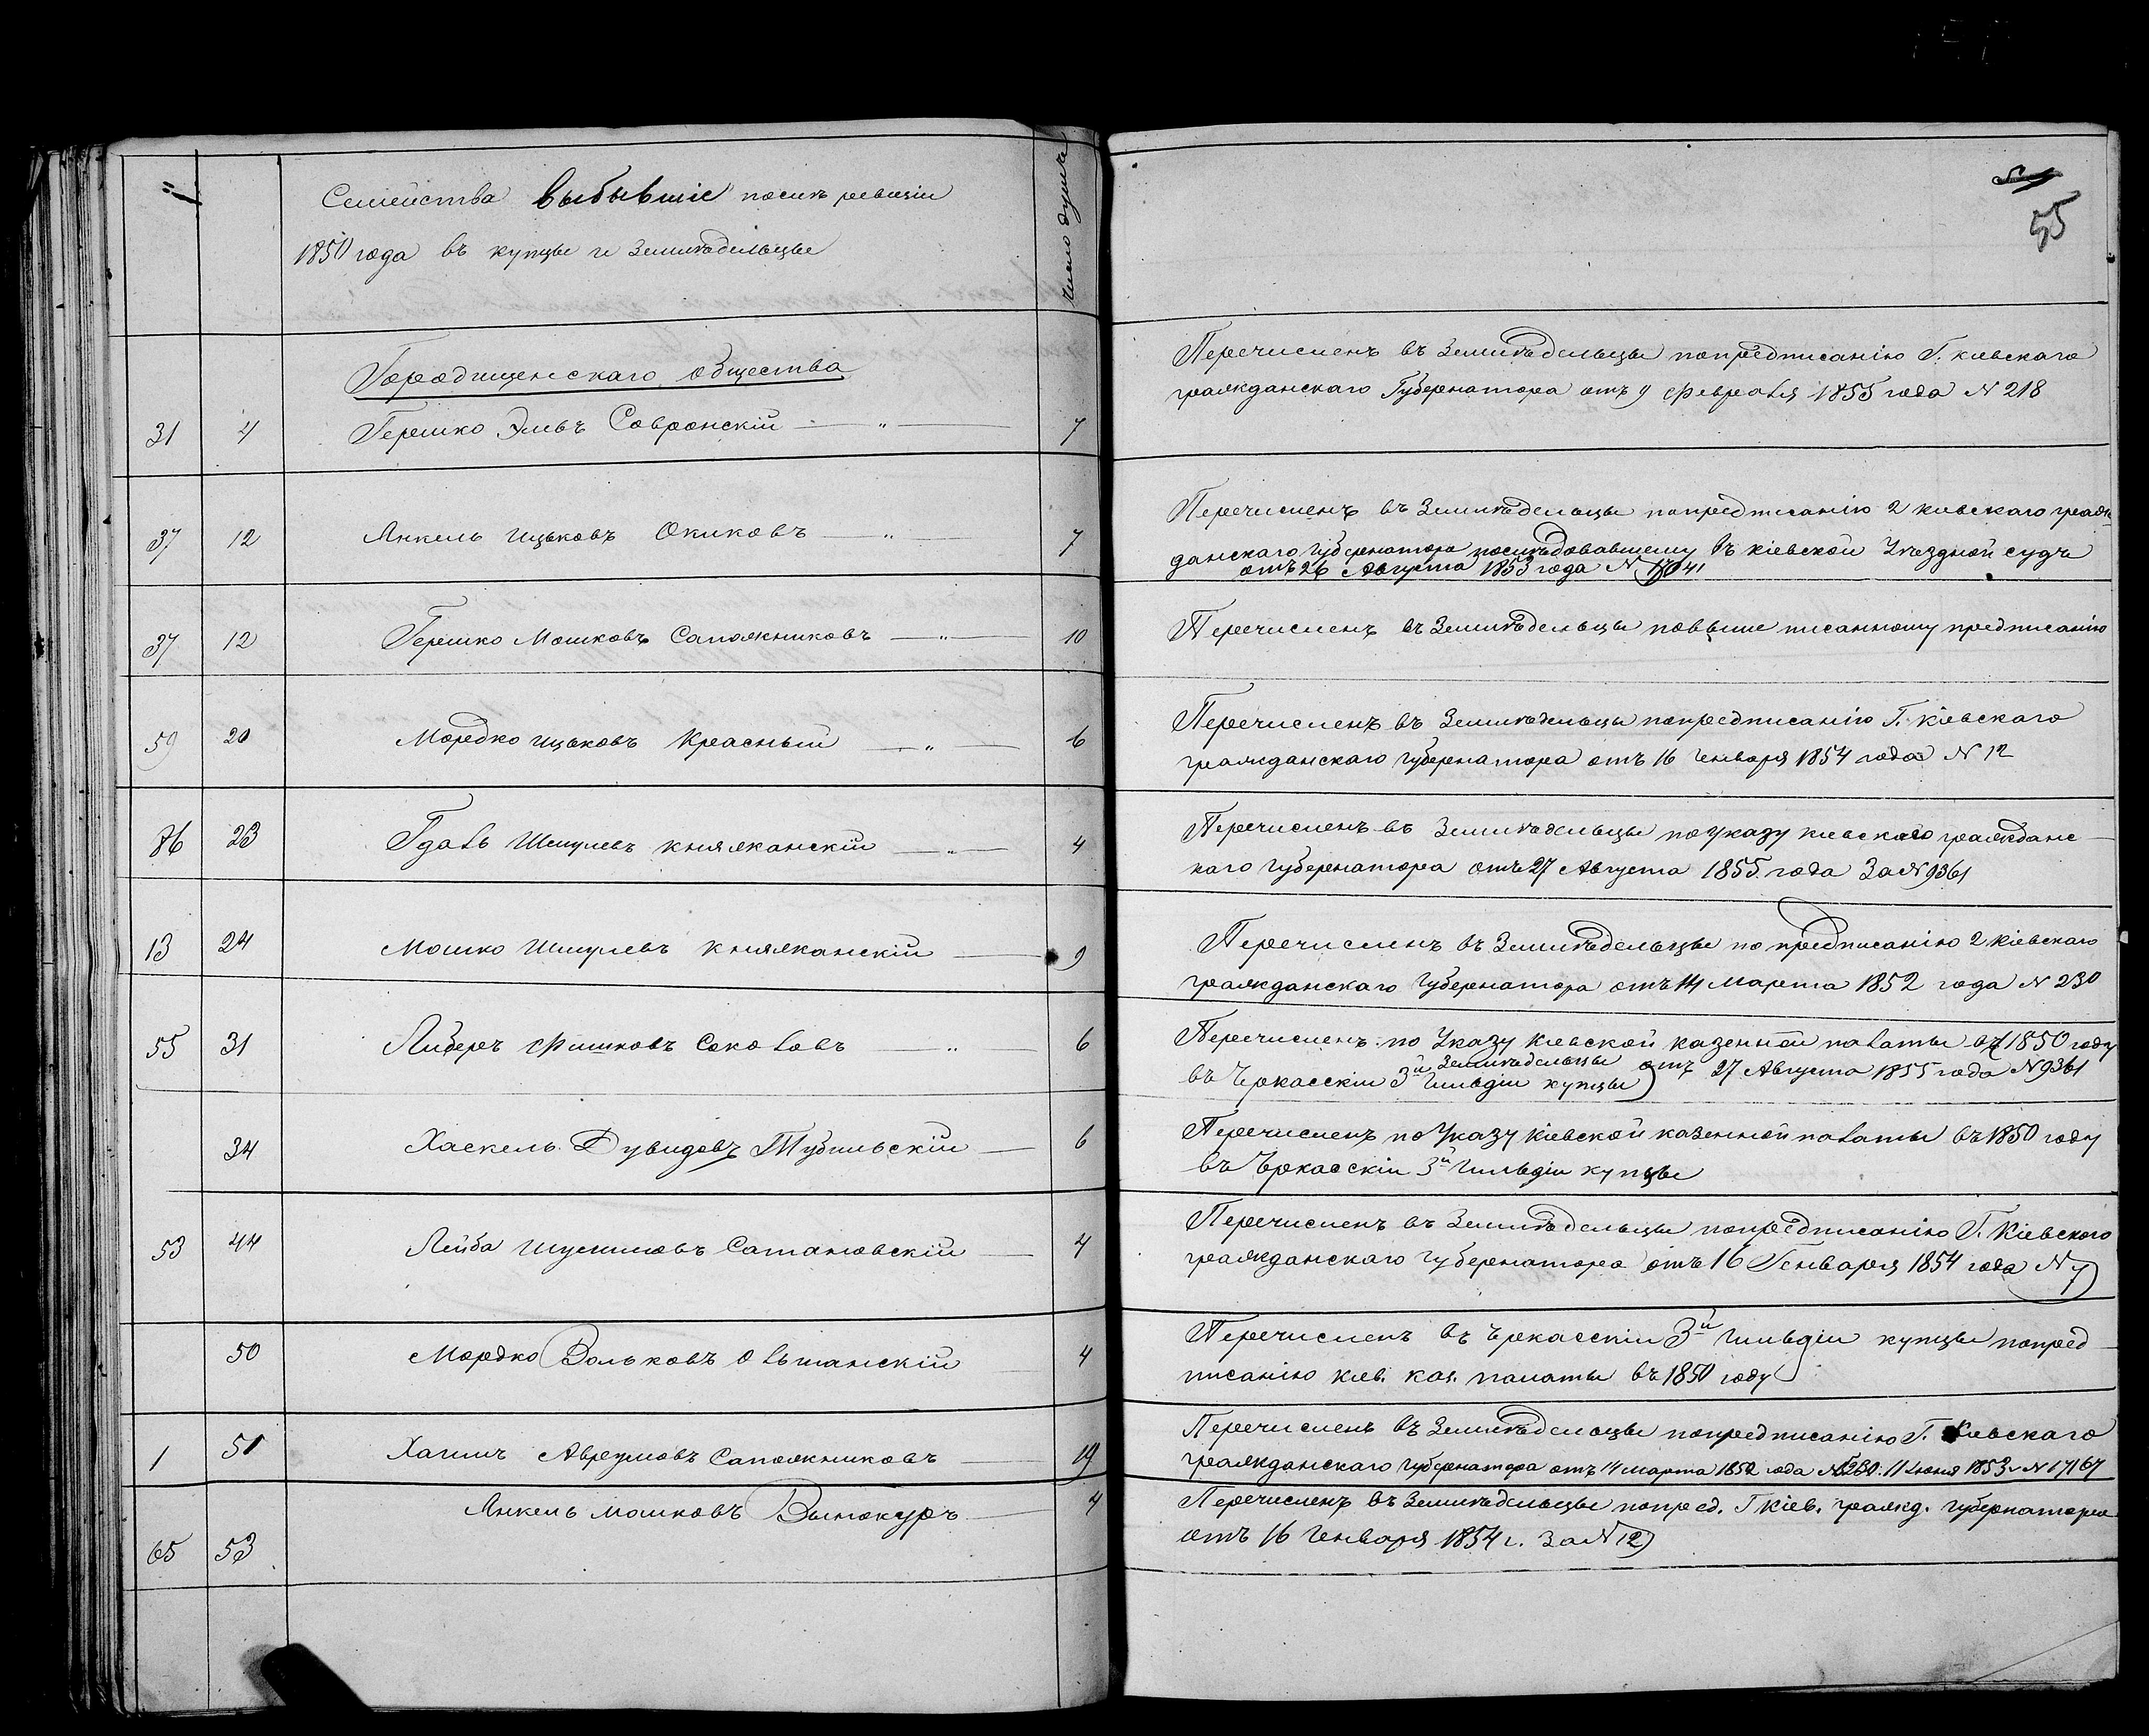 Семейства выбывшіе послѣ ревизіи
1850 года въ купцы и Земледѣльцы
число душъ
55
Городищенскаго общества
31 4 Гершко Элевъ Совронскій — " — 7
Перечисленъ въ Земледѣльцы попредписанію Г. кіевскаго
гражданскаго Губернатора отъ 9 февраля 1855 года N 218
37 12 Янкель Ицьковъ Окиковъ — " — 7
Перечисленъ въ Земледѣльцы попредписанію г кіевскаго граж
данскаго Губернатора послѣдовавшему въ кіевской Уѣздной судъ
отъ 26 Августа 1853 года N
37 12 Гершко Мошковъ Сапожниковъ — " — 10
Перечисленъ въ Земледѣльцы повыше писанному предписанію
59 20 Мордко Ицьковъ Красный — " — 6
Перечисленъ въ Земледѣльцы попредписанію Г. Кіевскаго
гражданскаго губернатора отъ 16 Генваря 1854 года N 12
76 23 Гдаль Шмулевъ княжанскій — " — 4
Перечисленъ въ Земледѣльцы поуказу кіевскаго гражданс
каго Губернатора отъ 27 Августа 1855 года За N 9361
13 24 Мошко Шмулевъ княжанскій — 9
Перечисленъ въ Земледѣльцы по предписанію г кіевскаго
гражданскаго Губернатора отъ 14 Марта 1852 года N 230
55 31 Либеръ Фишковъ Соколовъ — " — 6
Перечисленъ по Указу Кіевской казенной палаты въ 1850 году
Земледѣльцы отъ 27 Августа 1855 года N 9361
въ Черкасскіи 3й Гильдіи купцы
34 Хаскель Дувидовъ Тубильскій — 6
Перечисленъ по Указу кіевской казенной палаты въ 1850 году
въ Черкасскіи 3й Гильдіи купцы
53 44 Лейба Шулимовъ Сатановскій — 4
Перечисленъ въ Земледѣльцы попредписанію Г. Кіевского
гражданскаго Губернатора отъ 16 Генваря 1854 года N 7
50 Мордко Вольковъ Ольшанскій — 4
Перечисленъ въ Черкасскіи 3й Гильдіи купцы попред
писанію кіев. каз. палаты въ 1850 году
1 51 Хаимъ Аврумовъ Сапожниковъ — 19
Перечисленъ въ Земледѣльцы попредписанію Г. Кіевскаго
гражданскаго Губернатора отъ 14 марта 1852 года N 230. 11 Июня 1853 N 17167
65 53 Янкель Мошковъ Винокуръ — 4
Перечисленъ въ Земледѣльцы попред. Г Кіев. гражд. губернатора
отъ 16 Генваря 1854 г. За N 12